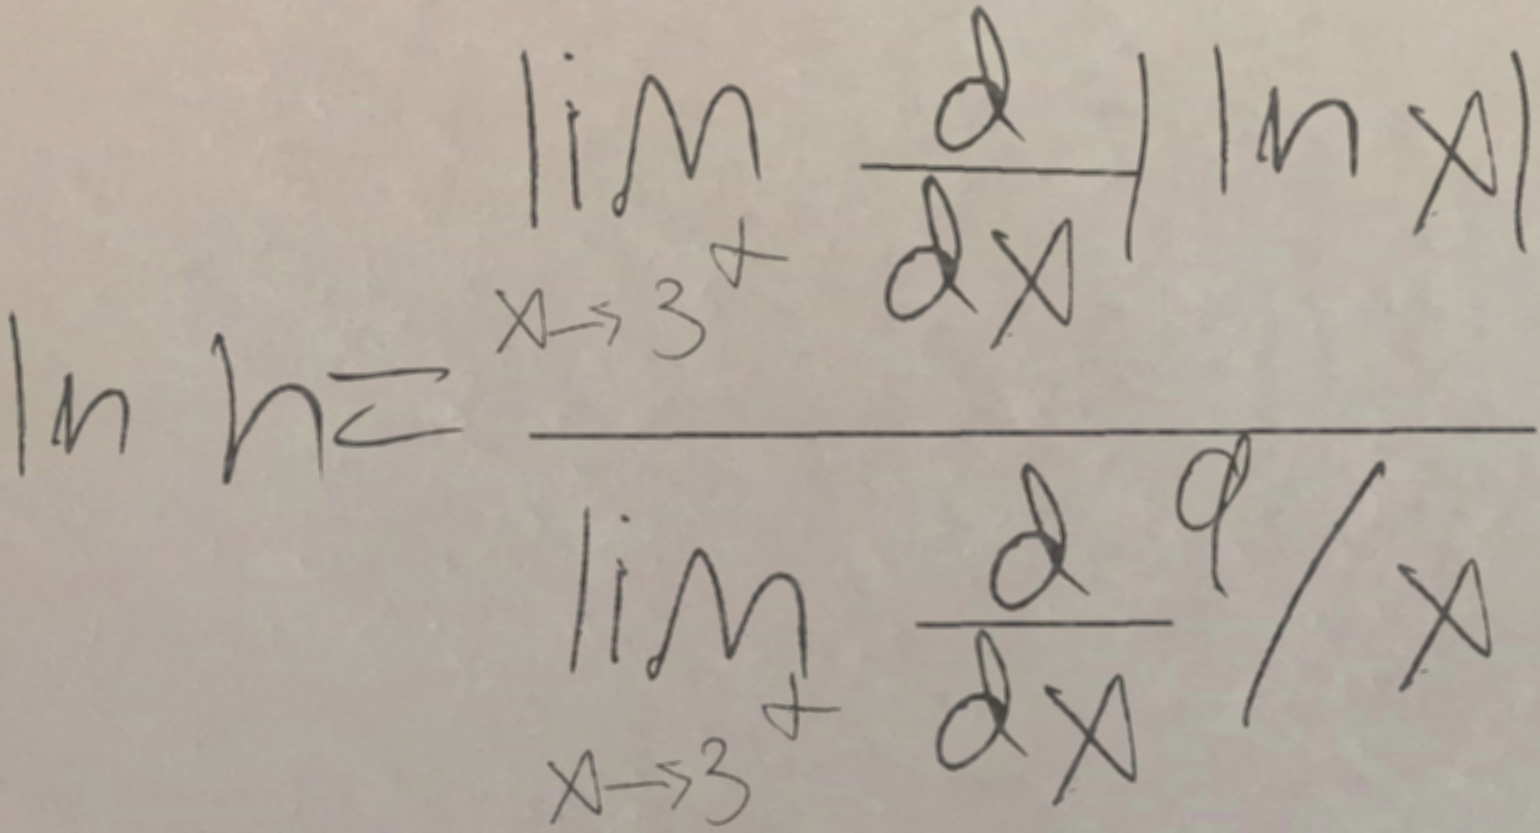 ln h = \frac{\lim_{x \to 3^+} \frac{d}{dx} |\ln x|}{\lim_{x \to 3^+} \frac{d}{dx} 9/x}